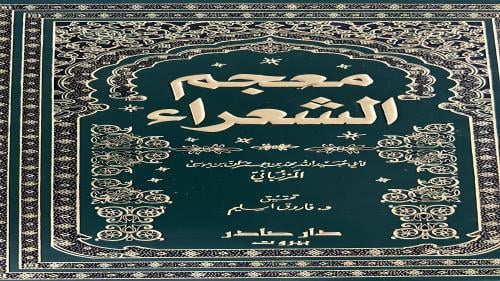 معجم
الشعراء
لأبي عبيد الله محمد بن عمران بن موسى
المرزباني
تحقيق
د. فاروق اسليم
دار صادر
بيروت